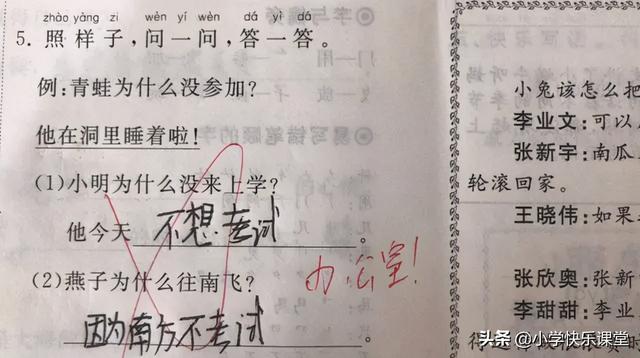 zhào yàng zi wèn yí wèn dá yì dá
5. 照样子,问一问,答一答。
例:青蛙为什么没参加?
他在洞里睡着啦!
(1)小明为什么没来上学?
他今天 不想考试 。
(2)燕子为什么往南飞?
因为南方不考试 。
办公室!
小兔该怎么把
李业文:可以
张新宇:南瓜
轮滚回家。
王晓伟:如果
张欣奥:张新
李甜甜:李业
头条 @小学快乐课堂